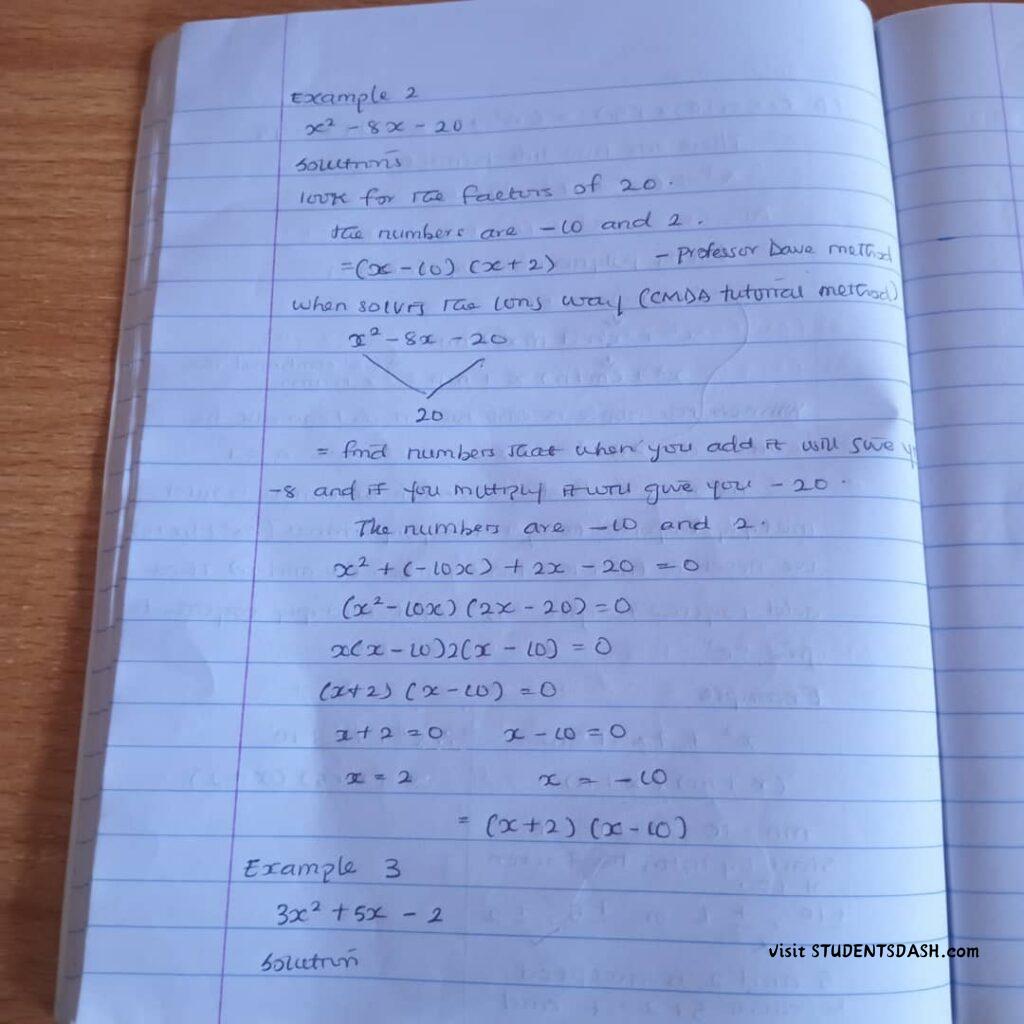 Example 2
x² - 8x - 20
Solutions
look for the factors of 20.
The numbers are -10 and 2.
=(x - 10) (x + 2) - Professor Dave method
When solving the long way (CMDA tutorial method)
x² - 8x - 20
20
= find numbers that when you add it will give
-8 and if you multiply it will give you - 20.
The numbers are -10 and 2.
x² + (-10x) + 2x - 20 = 0
(x² - 10x) (2x - 20) = 0
x(x - 10)2(x - 10) = 0
(x+2) (x - 10) = 0
x + 2 = 0 x - 10 = 0
x = 2 x = -10
= (x+2) (x-10)
Example 3
3x² + 5x - 2
Solution
Visit STUDENTSDASH.com